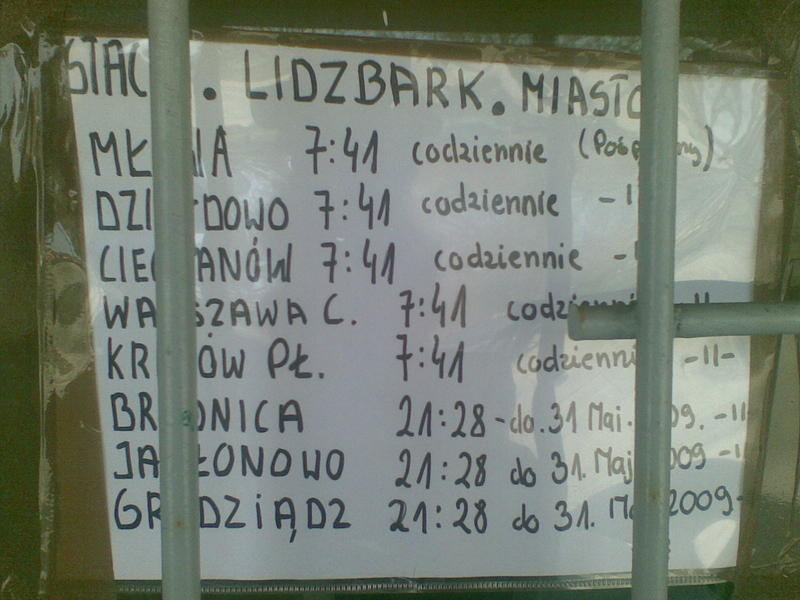 STACJA. LIDZBARK. MIASTO
MŁAWA 7:41 codziennie (Pośpieszny)
DZIAŁDOWO 7:41 codziennie -II-
CIECHANÓW 7:41 codziennie
WARSZAWA C. 7:41 codziennie -II-
KRAKÓW PŁ. 7:41 codziennie -II-
BRODNICA 21:28 - do. 31 Maj. 2009. -II-
JABŁONOWO 21:28 do 31. Maj 2009 -II-
GRUDZIĄDZ 21:28 do 31. Maj 2009-